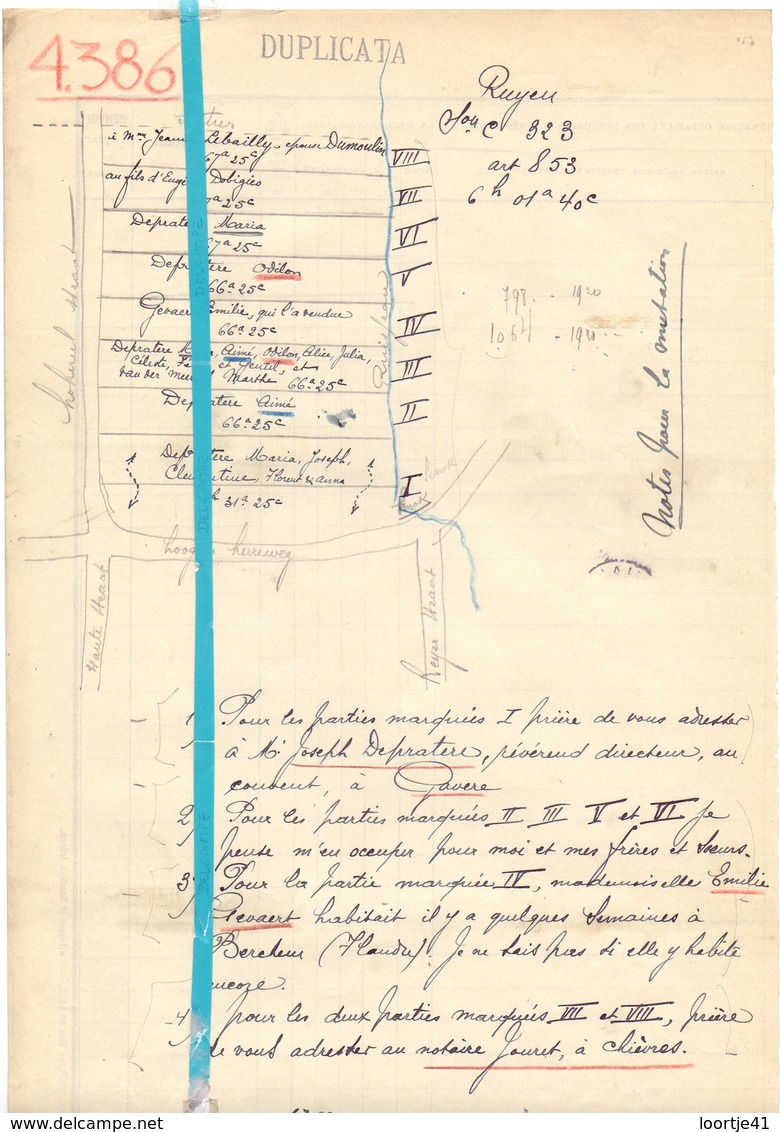 4.386
DUPLICATA
Ruyen
Son C 323
art 853
6h 01a 40c
à Mme Jeanne Lebailly, épouse Dumoulin
67a 25c
VIII
au fils d'Eugè Dobigies
7a 25c
VII
Depratere Maria
67a 25c
VI
Depratere Odilon
66a 25c
V
Gevaert Emilie, qui l'a vendue
66a 25c
IV
Depratere Aimé, Odilon, Alice, Julia,
Céleste, et Gentil, et
Van der Marthe 66a 25c
III
Depratere Aimé
66a 25c
II
Depratere Maria, Joseph,
Clementine, Florent & Anna
31a 25c
I
798 -- 1920
1064 -- 1921
Notes pour la mutation
hoogen herreweg
Haute Straat
Reyer Straat
1) Pour les parties marquées I prière de vous adresser
à Mr Joseph Depratere, révérend directeur, au
couvent, à Gavere
2) Pour les parties marquées II III V et VI je
pense m'en occuper pour moi et mes frères et sœurs.
3) Pour la partie marquée IV, mademoiselle Emilie
Gevaert habitait il y a quelques semaines à
Bercheur (Flandre). Je ne sais pas si elle y habite
encore.
4) pour les deux parties marquées VII et VIII, prière
de vous adresser au notaire Jouret, à Chièvres.
DELCAMPE
DELCAMPE
DELCAMPE
loortje41